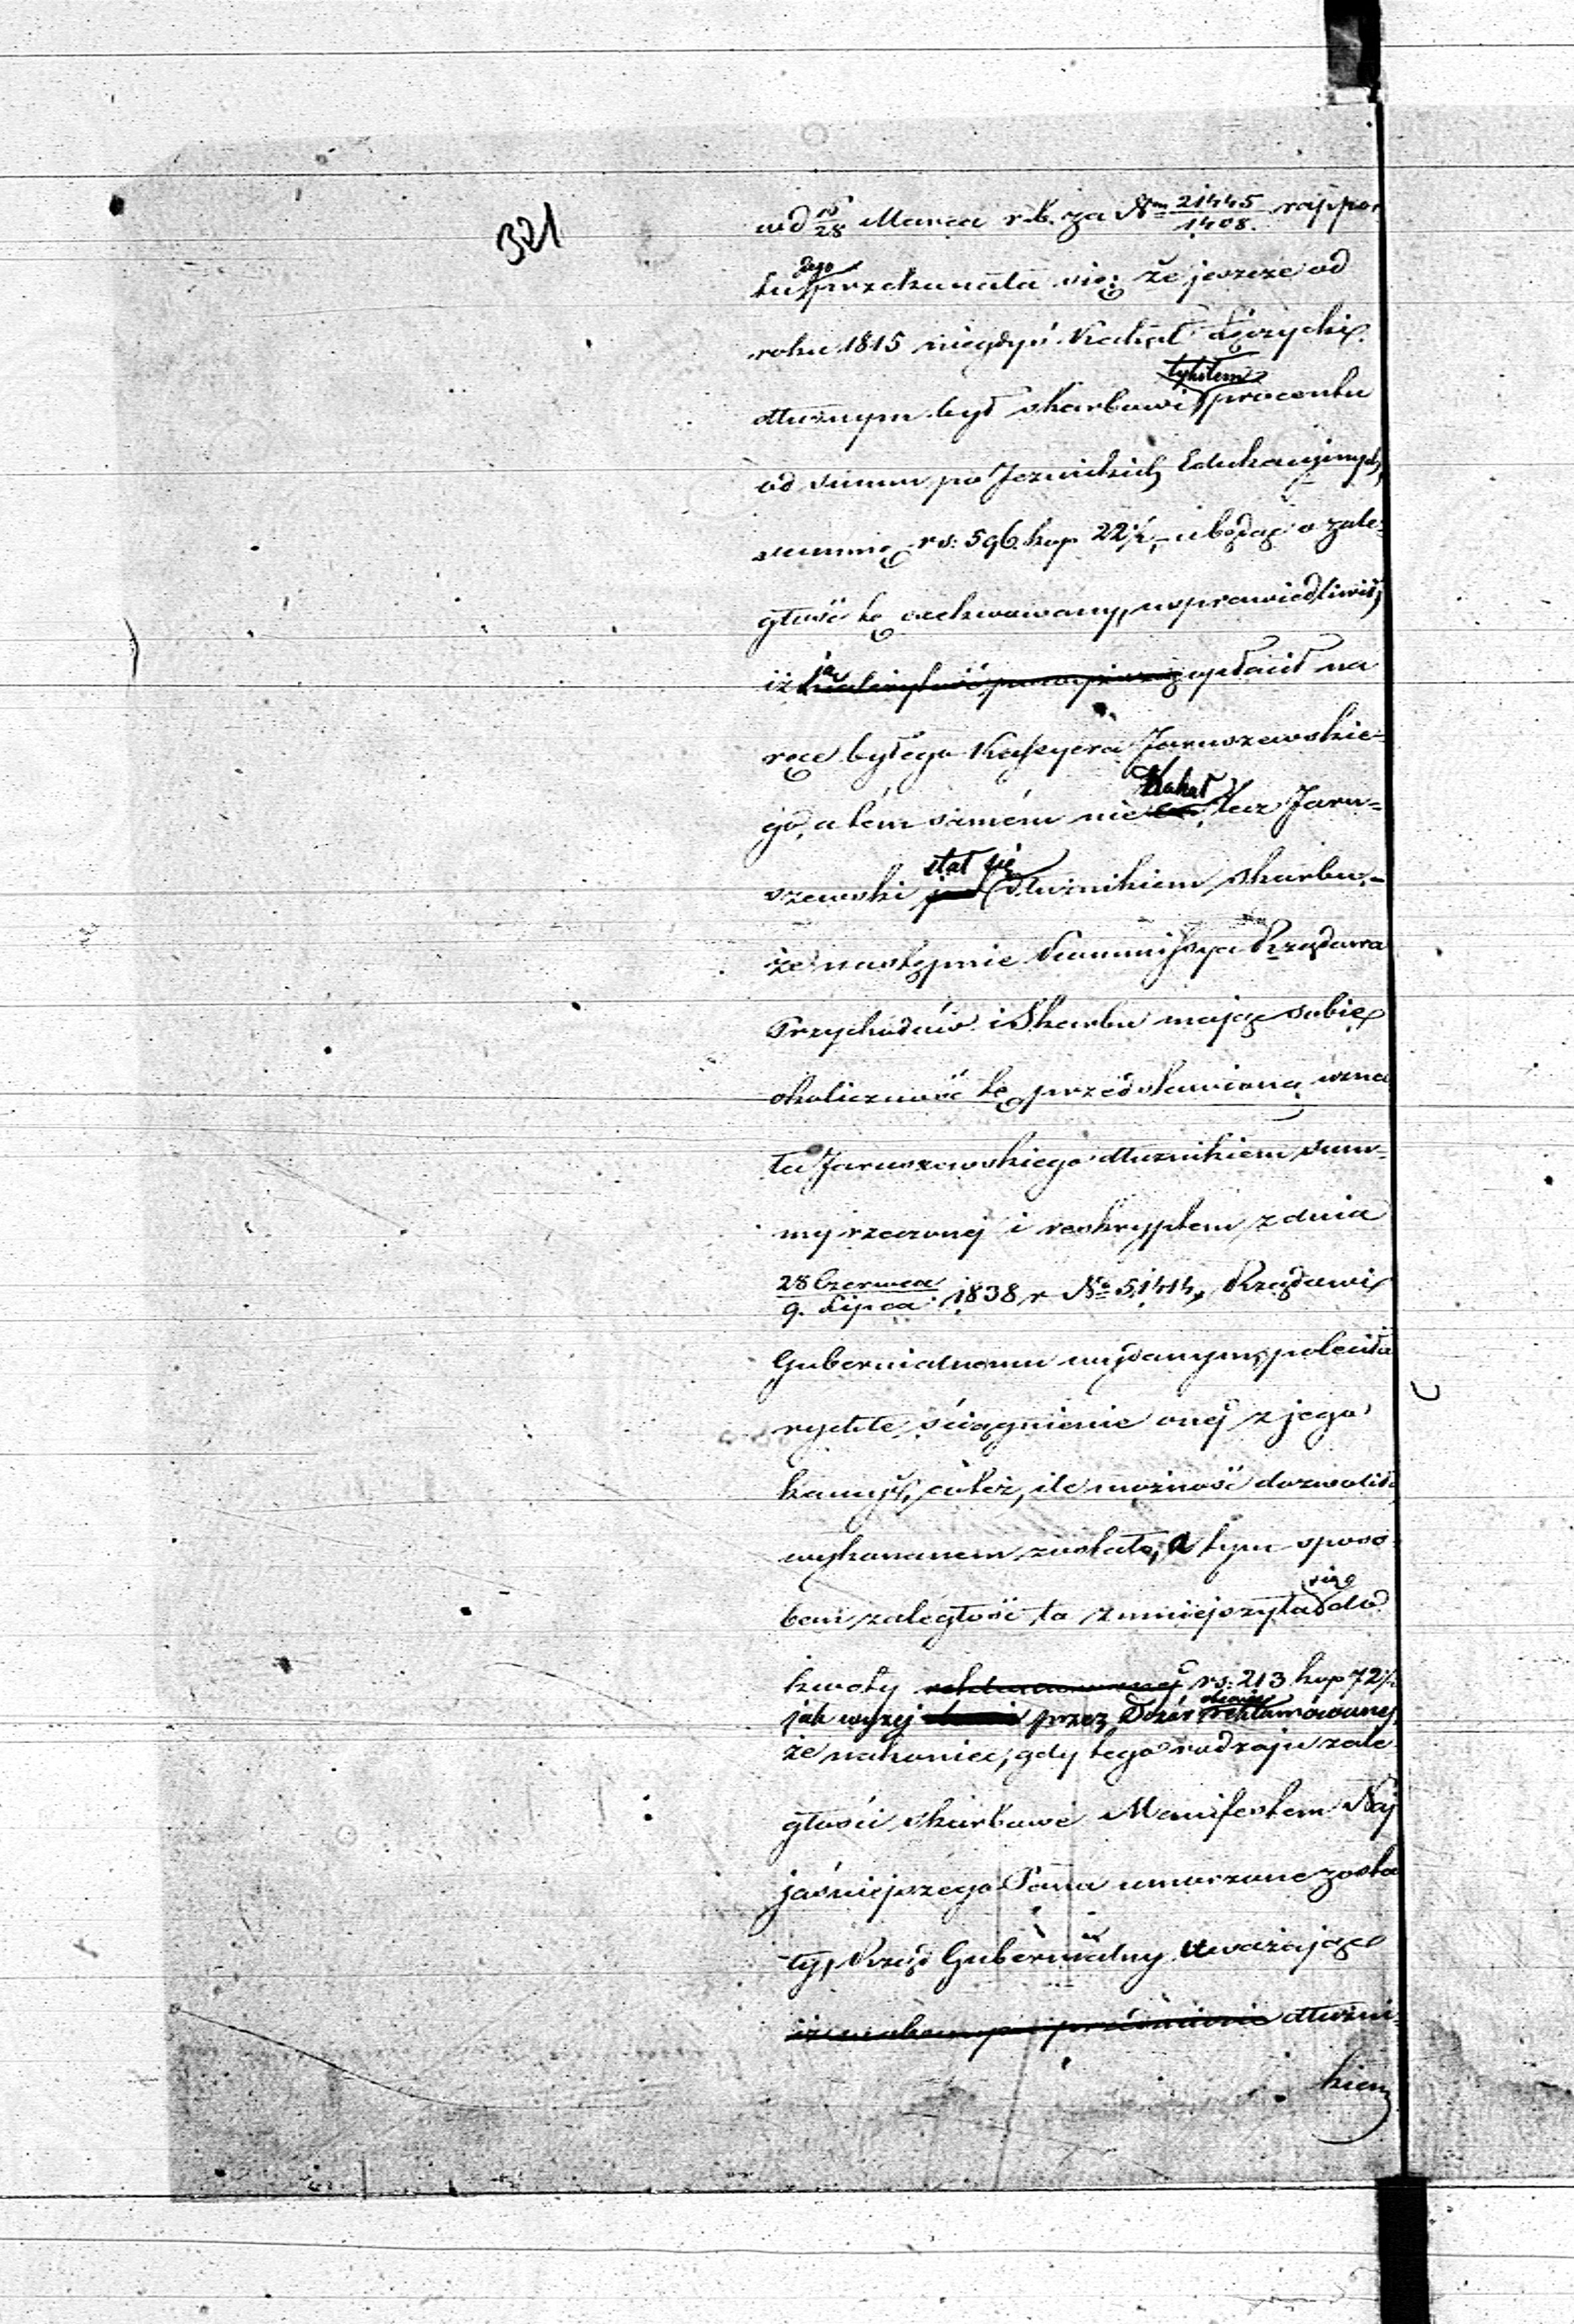 321
w d 16/28 Marca r. b. za Nm 21445/1408. rappor
tu Jego przekonała się: że jeszcze od
roku 1815 niegdyś Kahał Łosycki
dłużnym był skarbowi tytułem procentu
od summ po Jezuickich Edukacyjnych
summę rs: 596. kop 22½, i będąc o zale-
głość tę exekwowany, usprawiedliwił,
iż ją opłacił na
ręce byłego Kassyera Jaruszewskie-
go, a tém samém nie Kahał lecz Jaru-
szewski stał się dłużnikiem skarbu,-
że następnie Kommissya Rządowa
Przychodów i Skarbu mając sobie
okoliczność tę przedstawioną uzna
ła Jaruszewskiego dłużnikiem sum-
my rzeczonej i reskryptem z dnia
28 Czerwca/9. Lipca 1838 r No 51414, Rządowi
Gubernialnemu wydanym, poleciła
rychłe ściągnienie onej z jego
kaucyi, co też, ile możność dozwolił
wykonanem zostało, a tym sposo
bem zaległość ta zmniejszyła się do
kwoty rs: 213 kop 72½
jak wyżej przez Dozór reklamowanej
że nakoniec, gdy tego rodzaju zale
głości skarbowe Manifestem Naj
jaśniejszego Pana umorzone zosta
ły, Rząd Gubernialny uważając
dłużni-
kiem